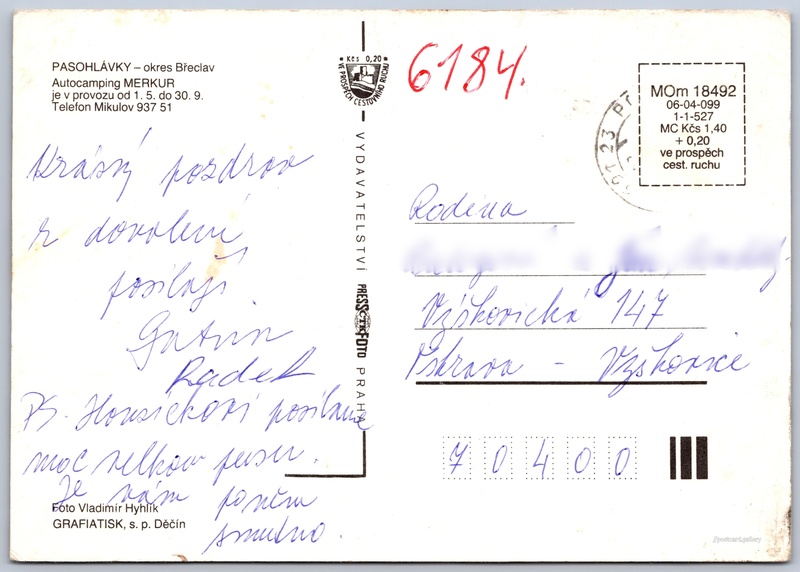 PASOHLÁVKY – okres Břeclav
Autocamping MERKUR
je v provozu od 1. 5. do 30. 9.
Telefon Mikulov 937 51
Krásný pozdrav
z dovolení
posílají
Radek
PS. posíláme
moc velkou pusu.
Je vám po něm
smutno.
Foto Vladimír Hyhlík
GRAFIATISK, s. p. Děčín
Kčs 0,20
VE PROSPĚCH CESTOVNÍHO RUCHU
VYDAVATELSTVÍ PRESSFOTO PRAHA
ČTK
6184.
MOm 18492
06-04-099
1-1-527
MC Kčs 1,40
+ 0,20
ve prospěch
cest. ruchu
Rodina
Výškovická 147
Ostrava – Výškovice
70400